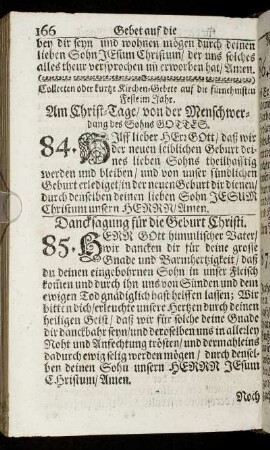 166 Gebet auf die
bey dir seyn und wohnen mögen durch deinen
lieben Sohn JEsum Christum/ der uns solches
alles theur versprochen und erworben hat/ Amen.
Collecten oder kurtze Kirchen-Gebete auf die fürnehmsten
Feste im Jahr.
Am Christ-Tage/ von der Menschwer-
dung des Sohns GOTTES.
84. HIlff lieber HErr GOtt/ daß wir
der neuen leiblichen Geburt dei-
nes lieben Sohns theilhafftig
werden und bleiben/ und von unser sündlichen
Geburt erlediget/ in der neuen Geburt dir dienen/
durch denselben deinen lieben Sohn JESUM
Christum unsern HERRN/ Amen.
Dancksagung für die Geburt Christi.
85. HERR GOtt himmlischer Vater/
wir dancken dir für deine grosse
Gnade und Barmhertzigkeit/ daß
du deinen eingebohrnen Sohn in unser Fleisch
kommen und durch ihn uns von Sünden und dem
ewigen Tod gnädiglich hast helffen lassen; Wir
bitten dich/ erleuchte unsere Hertzen durch deinen
heiligen Geist/ daß wir für solche deine Gnade
dir danckbahr seyn/ und derselben uns in allerley
Noht und Anfechtung trösten/ und dermahleins
dadurch ewig selig werden mögen/ durch densel-
ben deinen Sohn unsern HERRN JEsum
CHristum/ Amen.
Noch